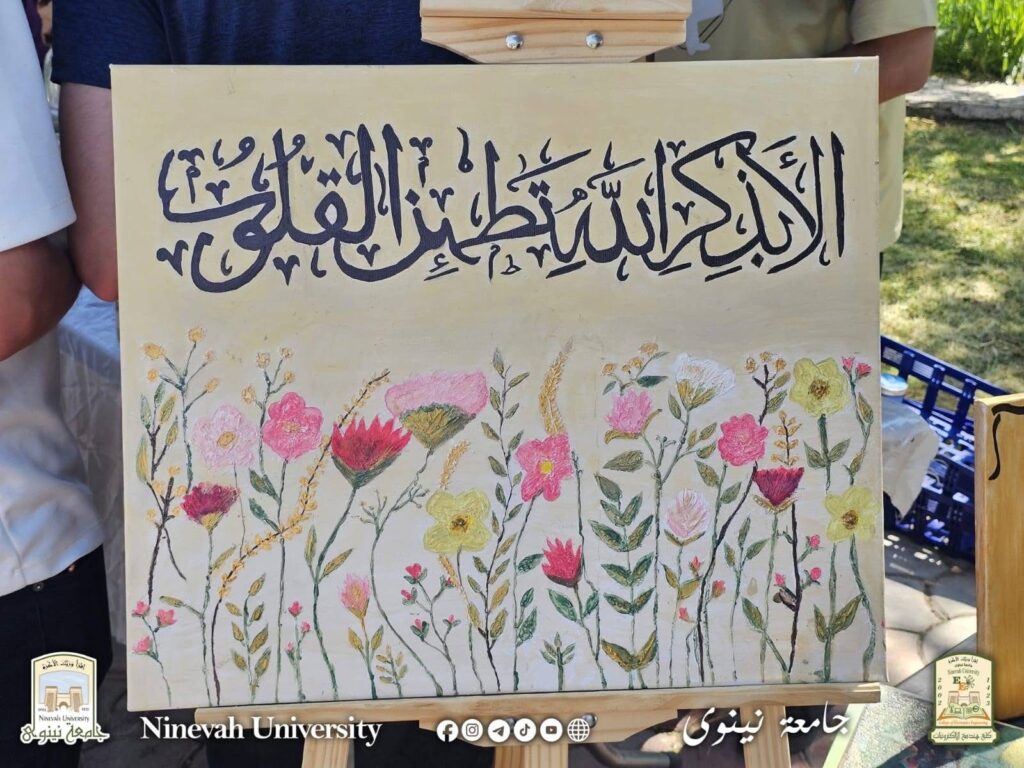 الا بذكر الله تطمئن القلوب
Ninevah University
جامعة نينوى
جامعة نينوى
كلية هندسة الالكترونيات